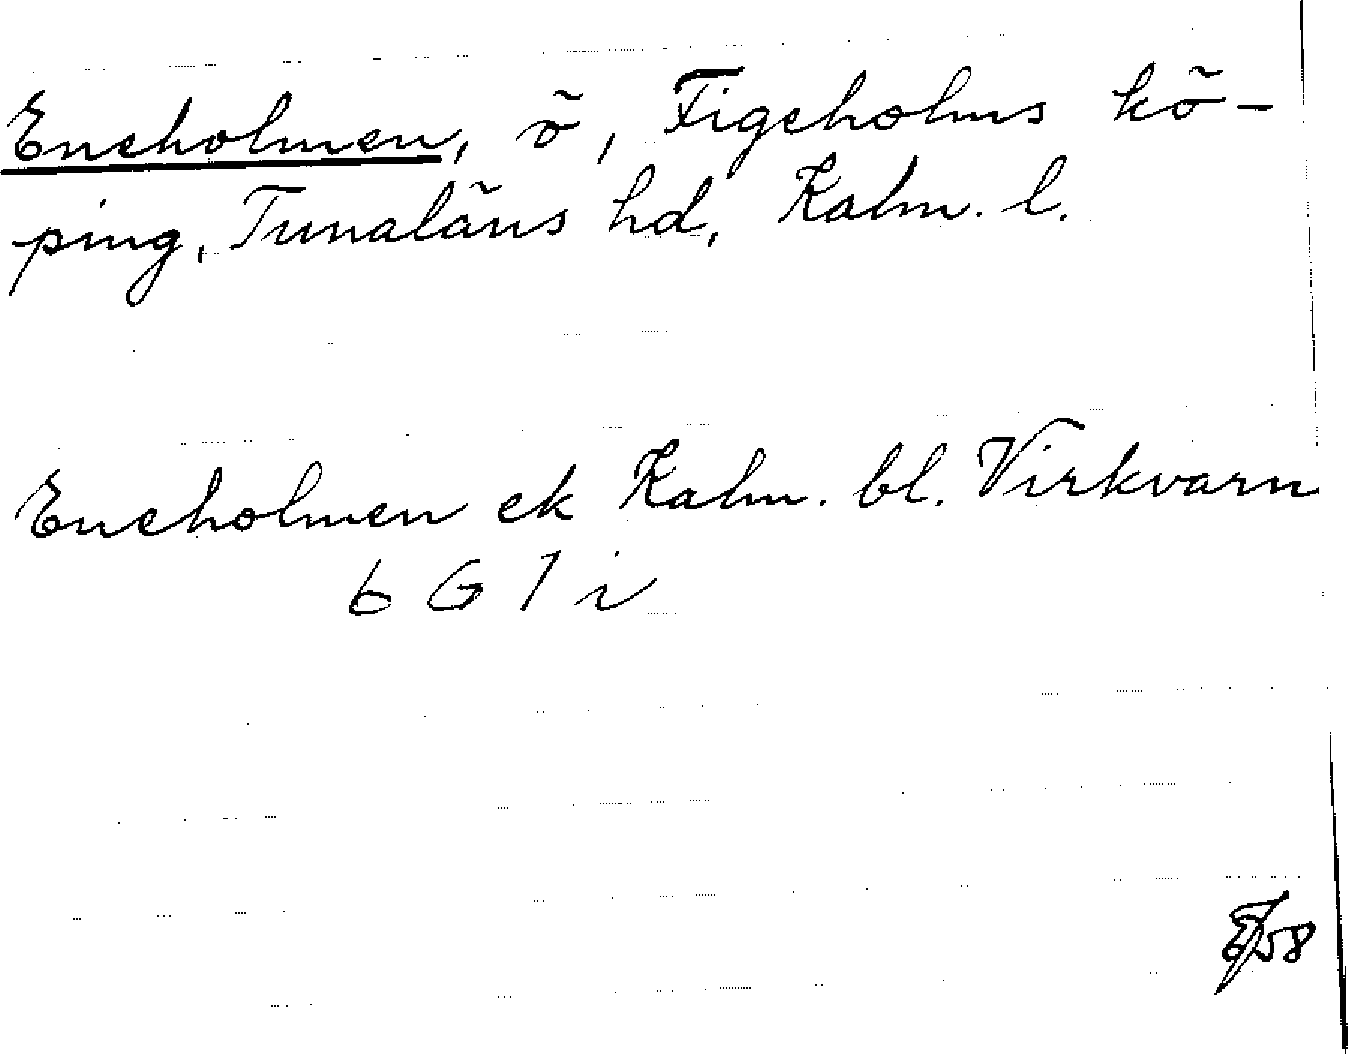 Eneholmen, ö, Figeholms kö-
ping, Tunaläns hd, Kalm. l.
Eneholmen ek Kalm. bl. Virkvarn
6 G 7 i
58